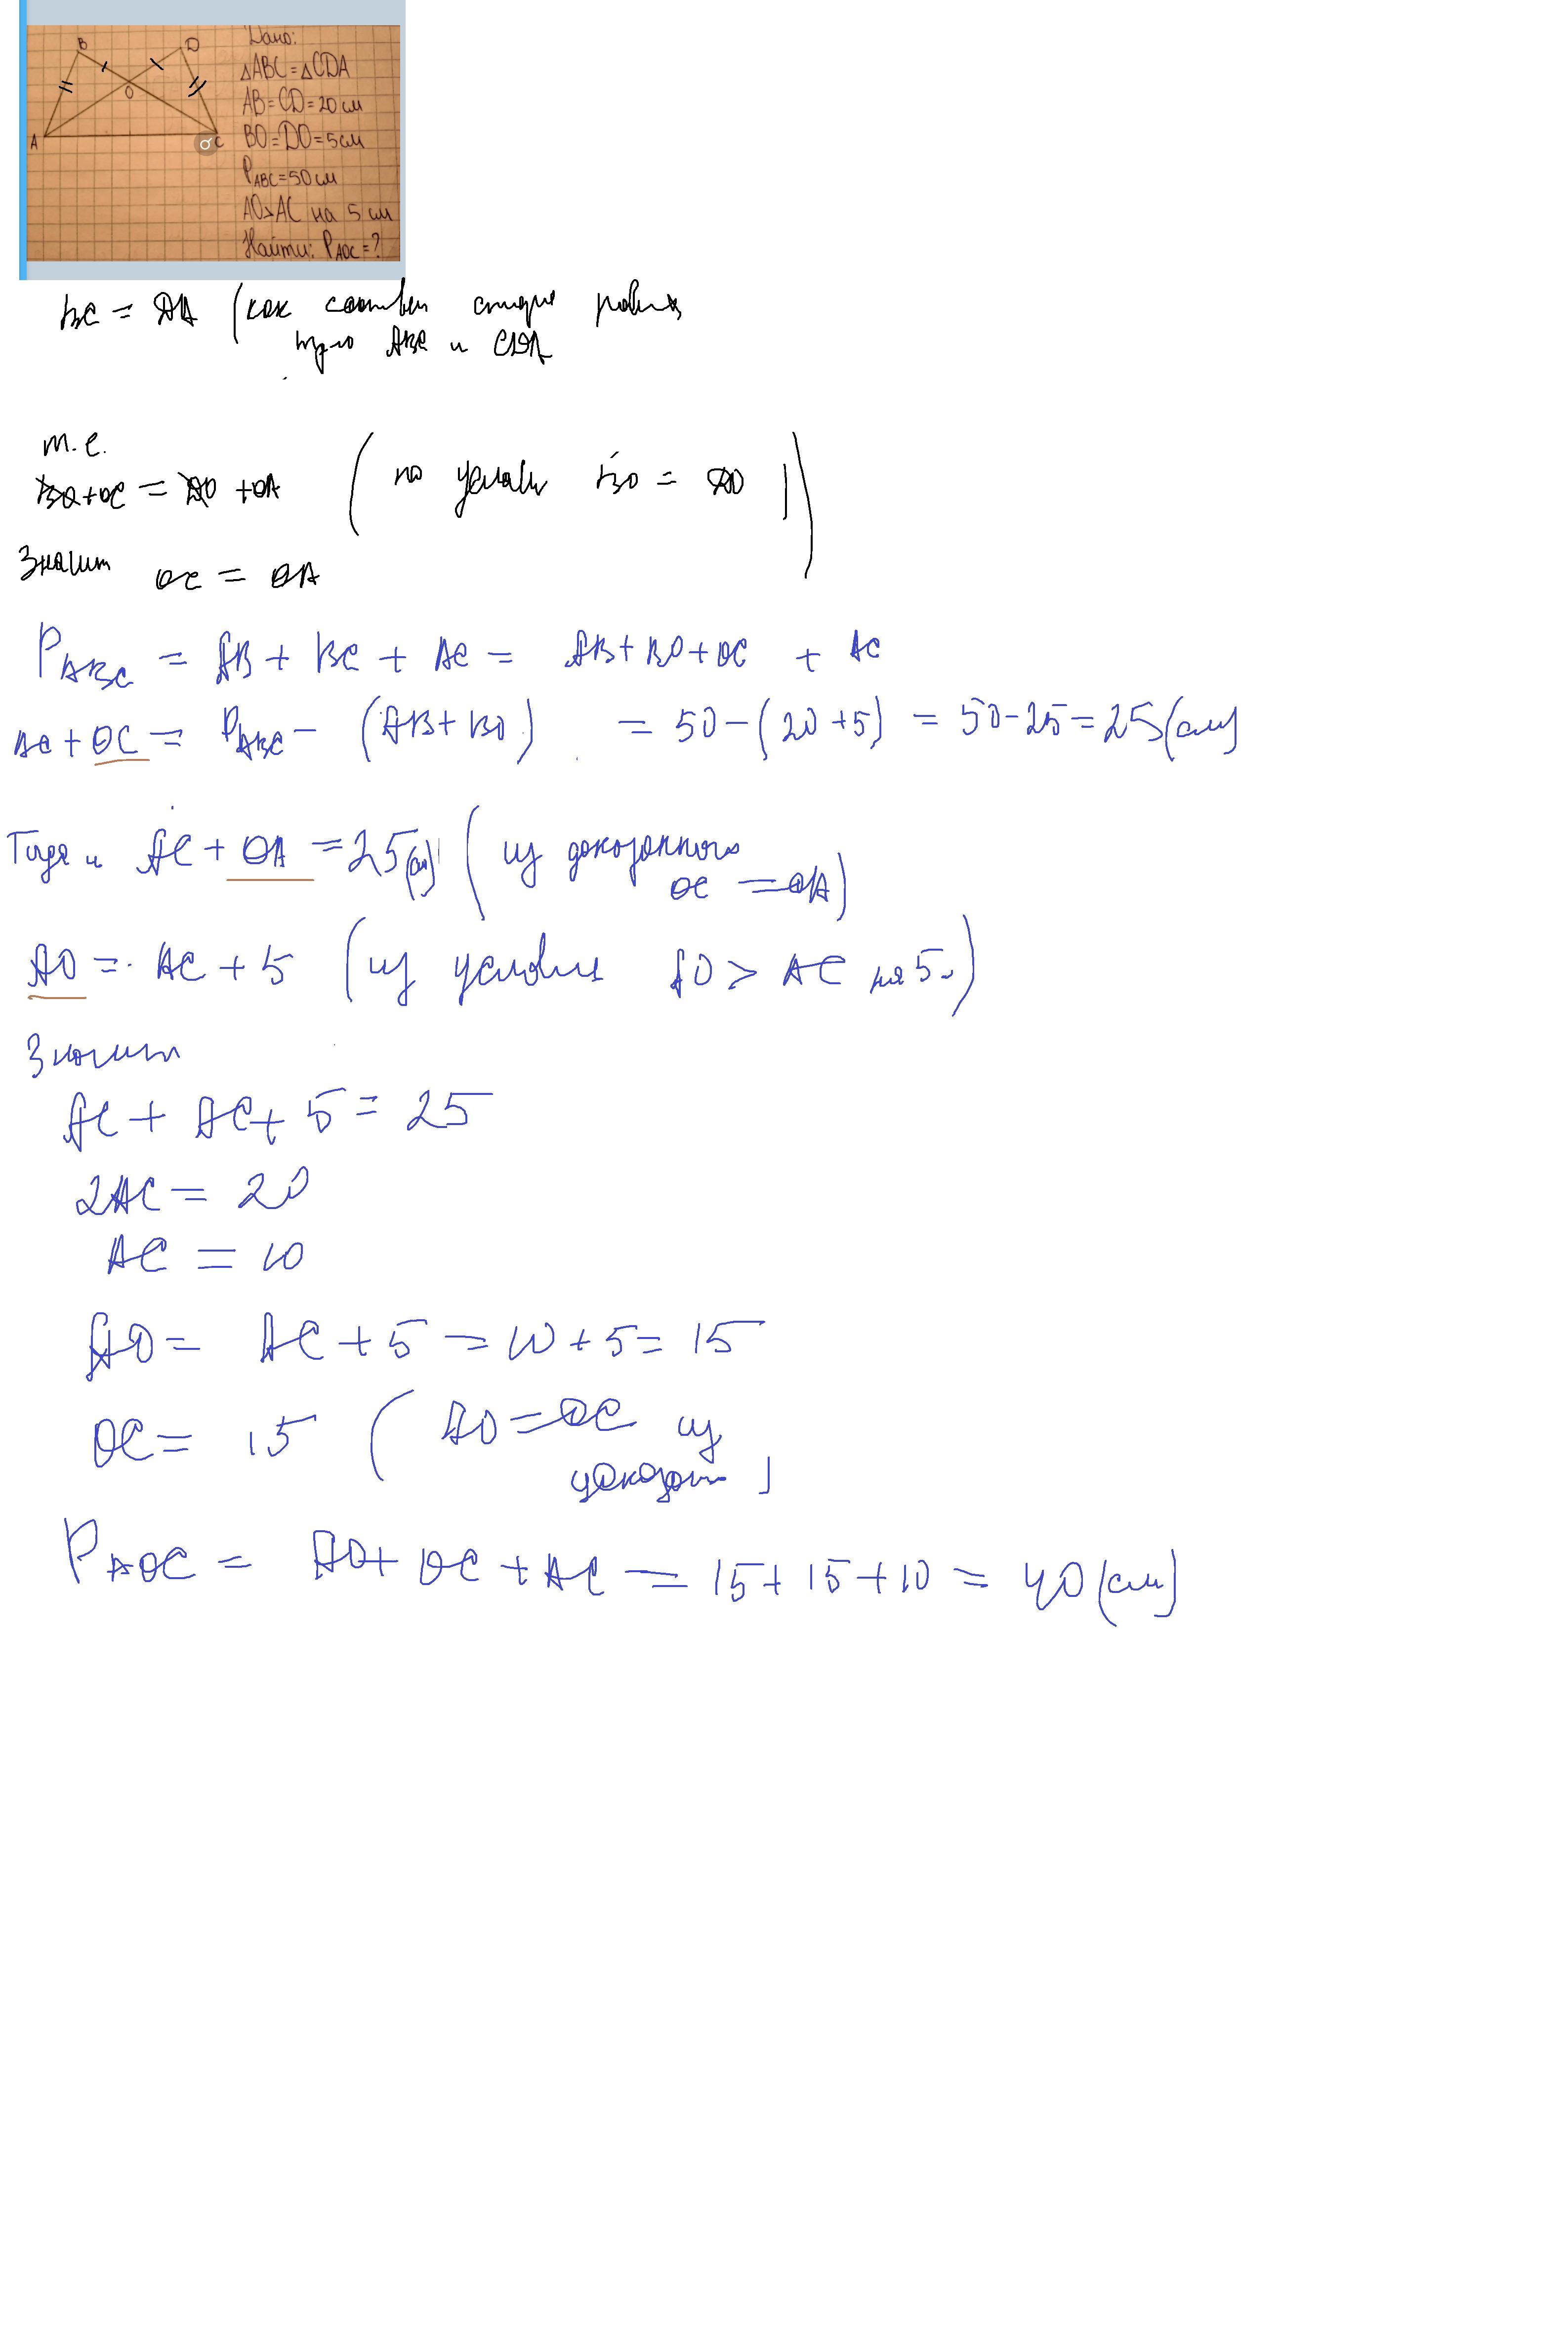 B
D
O
A
C
Дано:
△ABC=△CDA
AB=CD=20 см
BO=DO=5 см
P_ABC=50 см
AO>AC на 5 см
Найти: P_AOC=?
BC = DA (как соответ стороны равных
треуг ABC и CDA
т.е.
BO+OC = DO+OA (по условию BO = DO)
Значит OC = OA
P_ABC = AB + BC + AC = AB+BO+OC + AC
AC+OC = P_ABC − (AB+BO) = 50−(20+5) = 50−25=25(см)
Тогда и AC+OA =25(см) (из доказанного
OC =OA)
AO = AC+5 (из условия AO > AC на 5)
Значит
AC + AC+ 5 = 25
2AC = 20
AC = 10
AO = AC+5 = 10+5= 15
OC = 15 (AO=OC из
доказан)
P_AOC = AO+ OC + AC = 15+15+10 = 40(см)